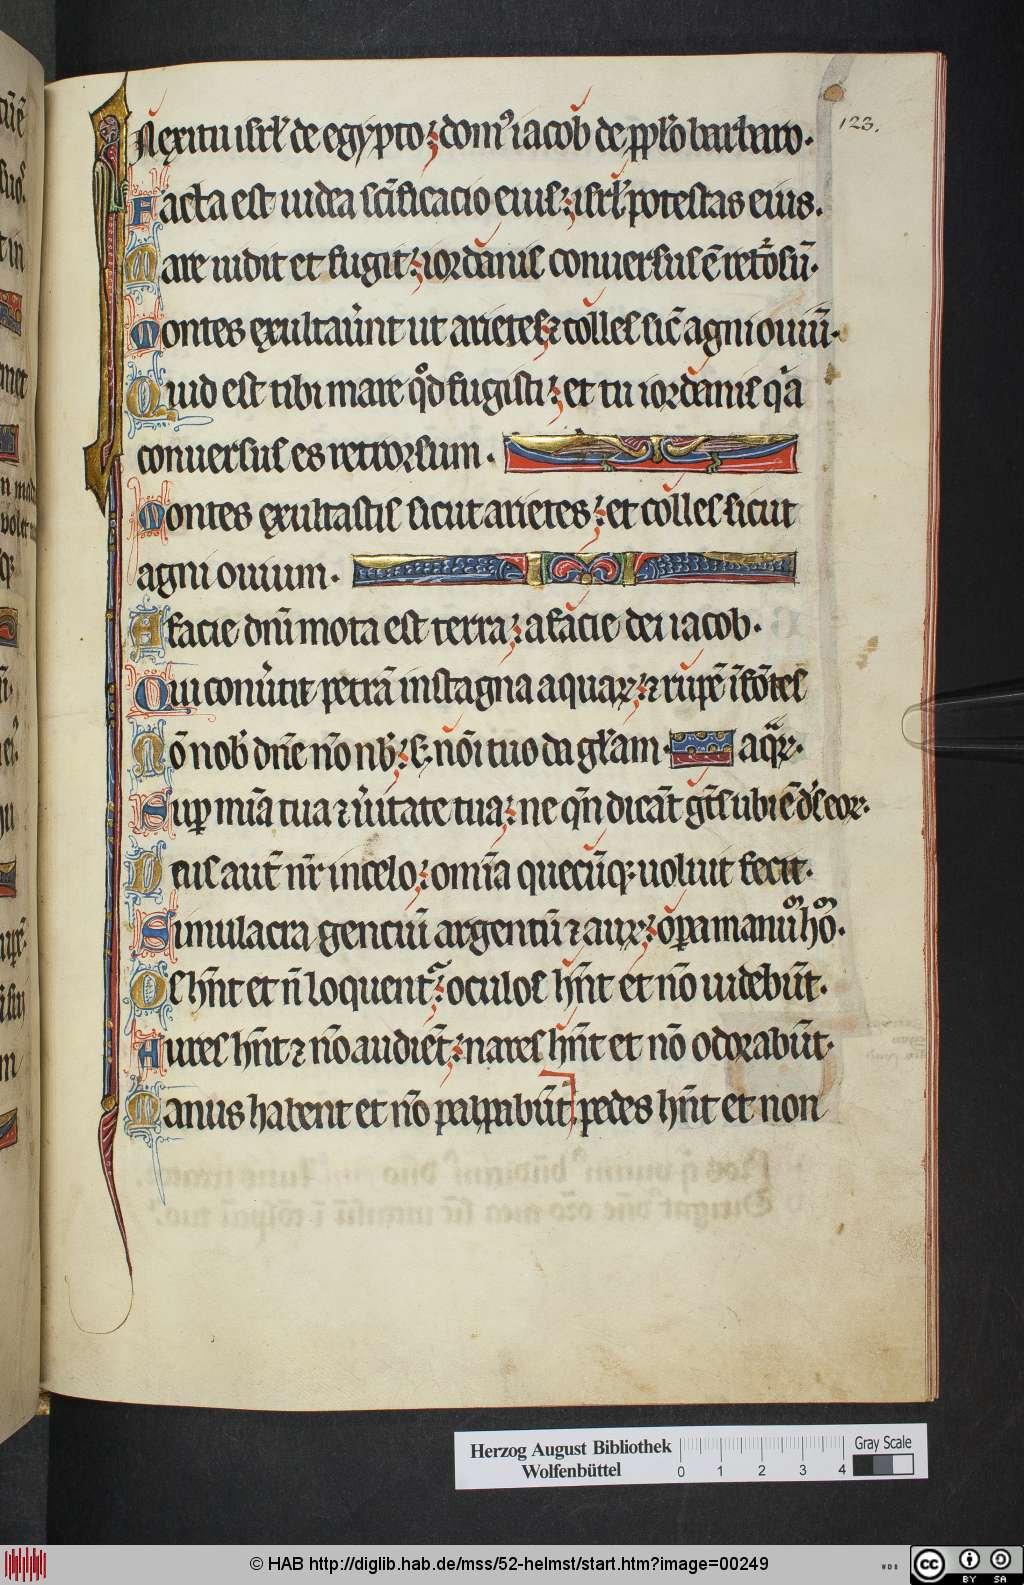 In exitu isrł de egypto ⁊ domꝰ iacob de ppło barbaro.
123.
Facta est iudea scīficacio eius ⁊ isrł potestas eius.
Mare uidit et fugit ⁊ iordanis conuersus ē retrorsū.
Montes exultauert ut arietes ⁊ colles sic̄ agni ouiū.
Quid est tibi mare qd̓ fugisti ⁊ et tu iordanis qa
conuersus es retrorsum.
Montes exultastis sicut arietes ⁊ et colles sicut
agni ouium.
A facie dn̄i mota est terra ⁊ a facie dei iacob.
Qui conũtit petrā in stagna aquaꝝ ⁊ rupē ī fōtes
Nō nob̓ dn̄e nō nb̓ ⁊ s; nōi tuo da głam. aqꝝ.
Suꝑ mīa tua ⁊ ũitate tua ⁊ ne qn̄ dicāt gt̄s ubi ē ds̓ eoꝝ.
Deus aut̄ nr̄ in celo ⁊ omīa quecūqꝫ uoluit fecit.
Simulacra genciū argentū ⁊ auꝝ ⁊ oꝑa manuū hōm.
Os hn̄t et n̄ loquent̓ ⁊ oculos hn̄t et nō uidebūt.
Aures hn̄t ⁊ nō audiēt ⁊ nares hn̄t et nō odorabūt.
Manus habent et nō palpabūt, pedes hn̄t et non
Herzog August Bibliothek
Wolfenbüttel
0 1 2 3 4
Gray Scale
© HAB http://diglib.hab.de/mss/52-helmst/start.htm?image=00249
cc BY SA